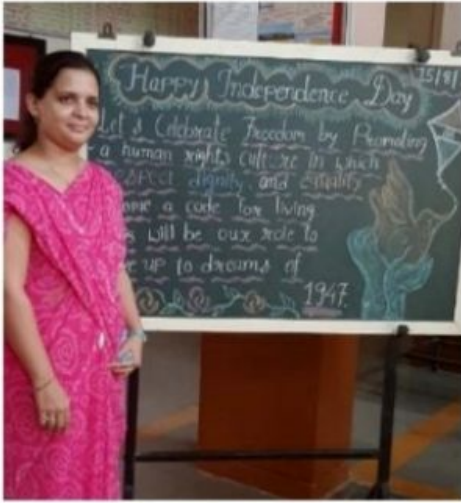 15/8/
Happy Independence Day
Let's Celebrate Freedom by Promoting
a human rights culture in which
respect dignity and equality
ome a code for living
s will be our role to
e up to dreams of
1947.